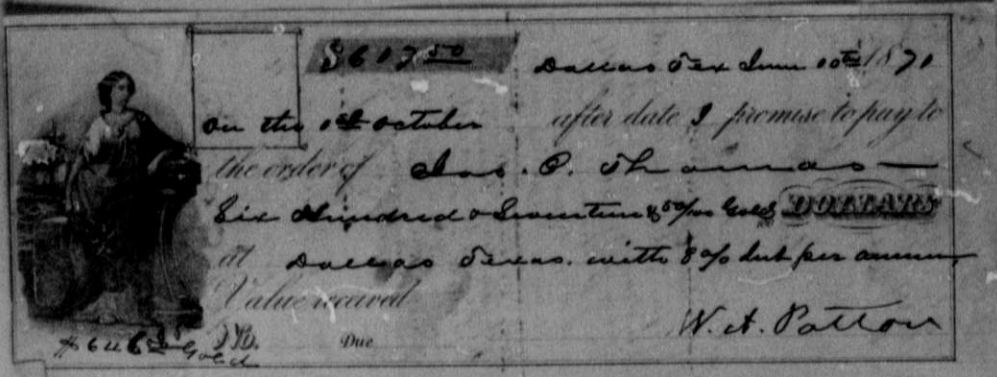 $617.50
Dallas Tex June 10th 1871
On the 1st October after date I promise to pay to
the order of Jas. P. Thomas
Six Hundred & Seventeen & 50/00 Gold DOLLARS
at Dallas Texas. with 8% Int per annum
Value received
W. A. Patton
No. Due
Gold